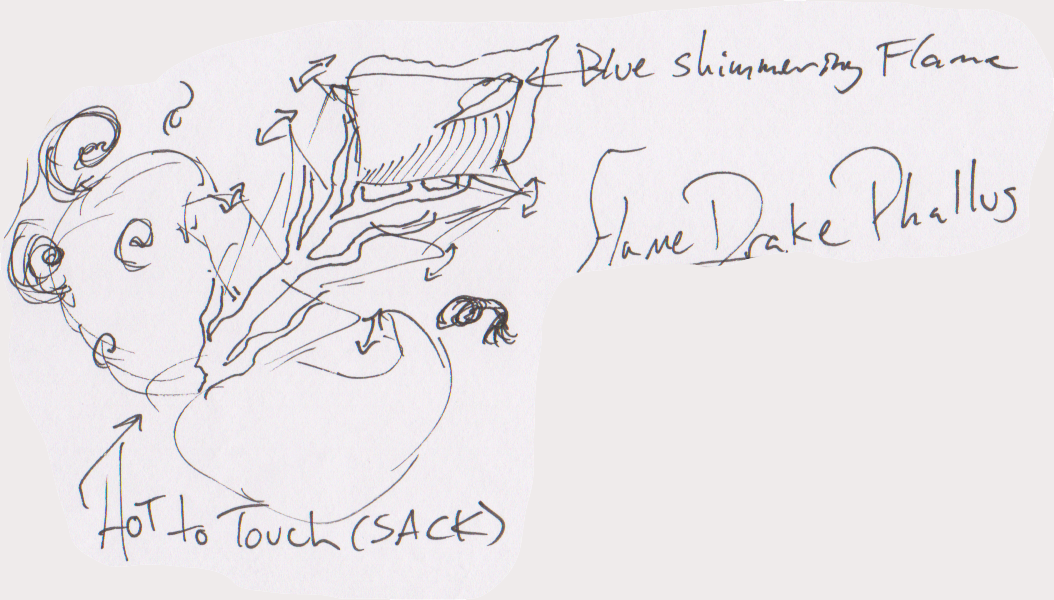 Blue shimmering Flame
Flame Drake Phallus
HOT to Touch (SACK)